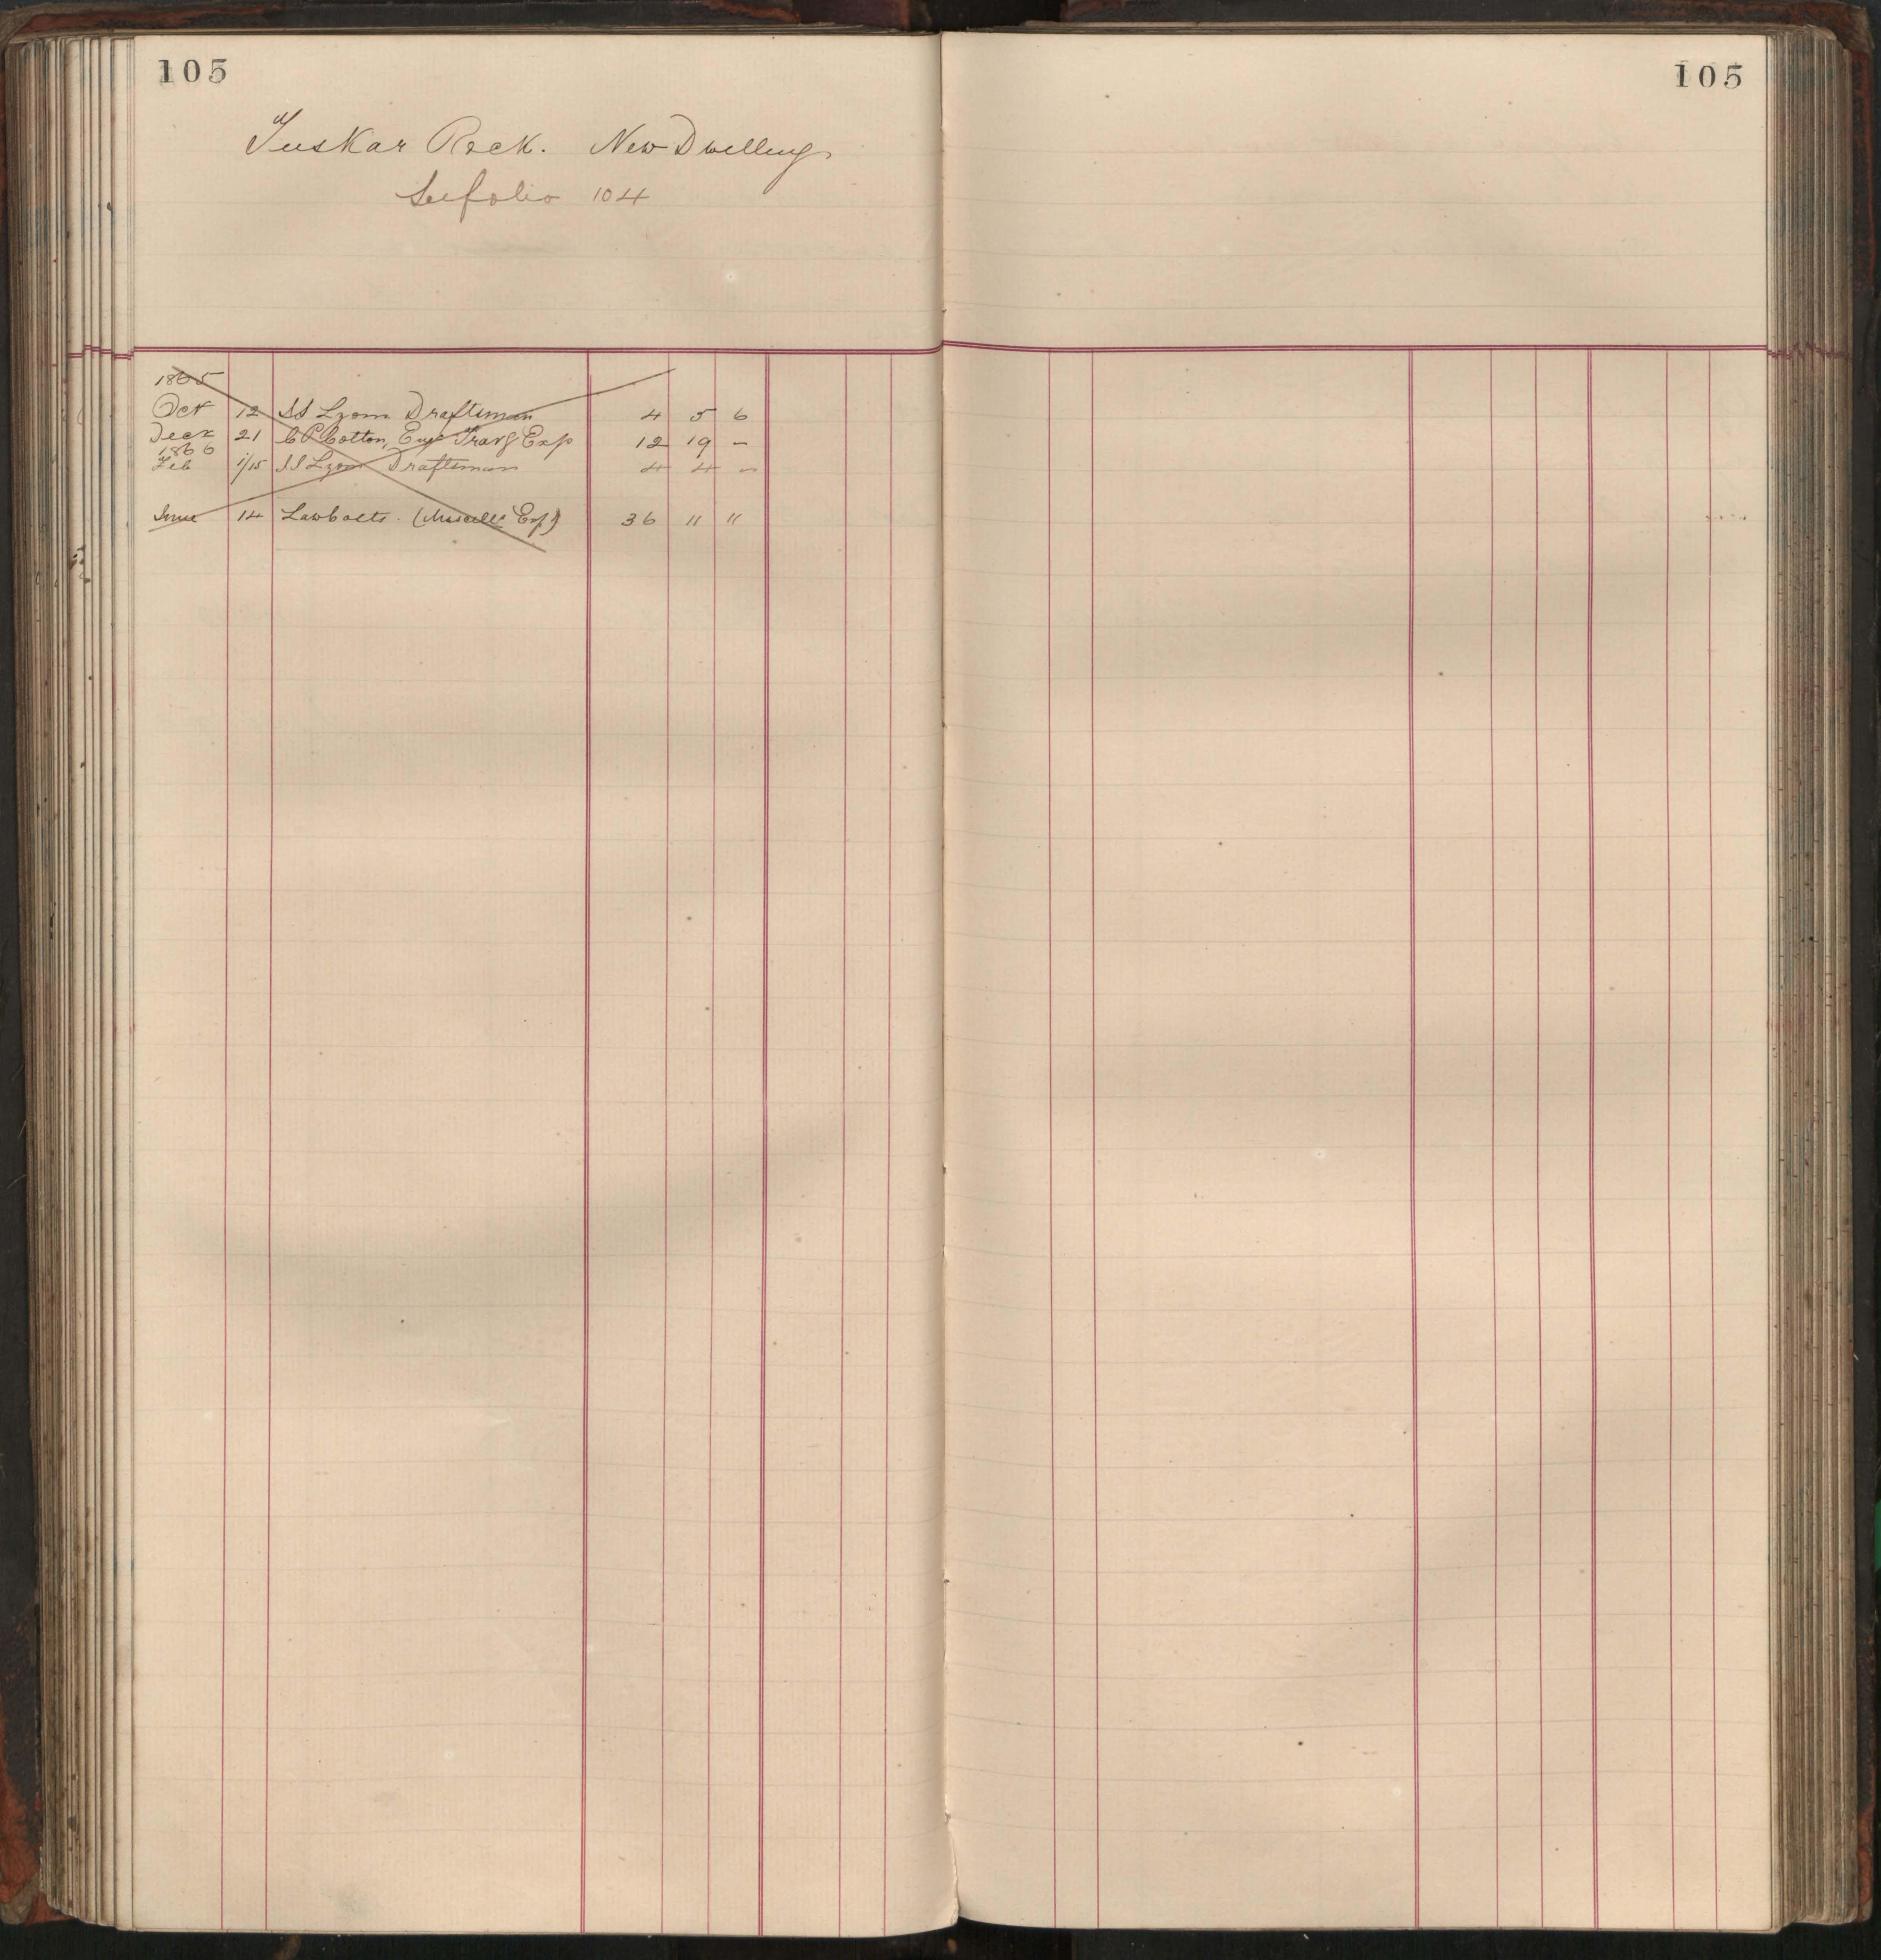 105
105
Tuskar Rock. New Dwellings
See folio 104
1865
Oct 12 SS Lyom Draftsman 4 5 6
Decr 21 C P Cotton, Engr Travg Exp 12 19 -
1866
Feb 1/15 SS Lyom Draftsman 4 4 -
June 14 (Miscells Exp) 36 " "